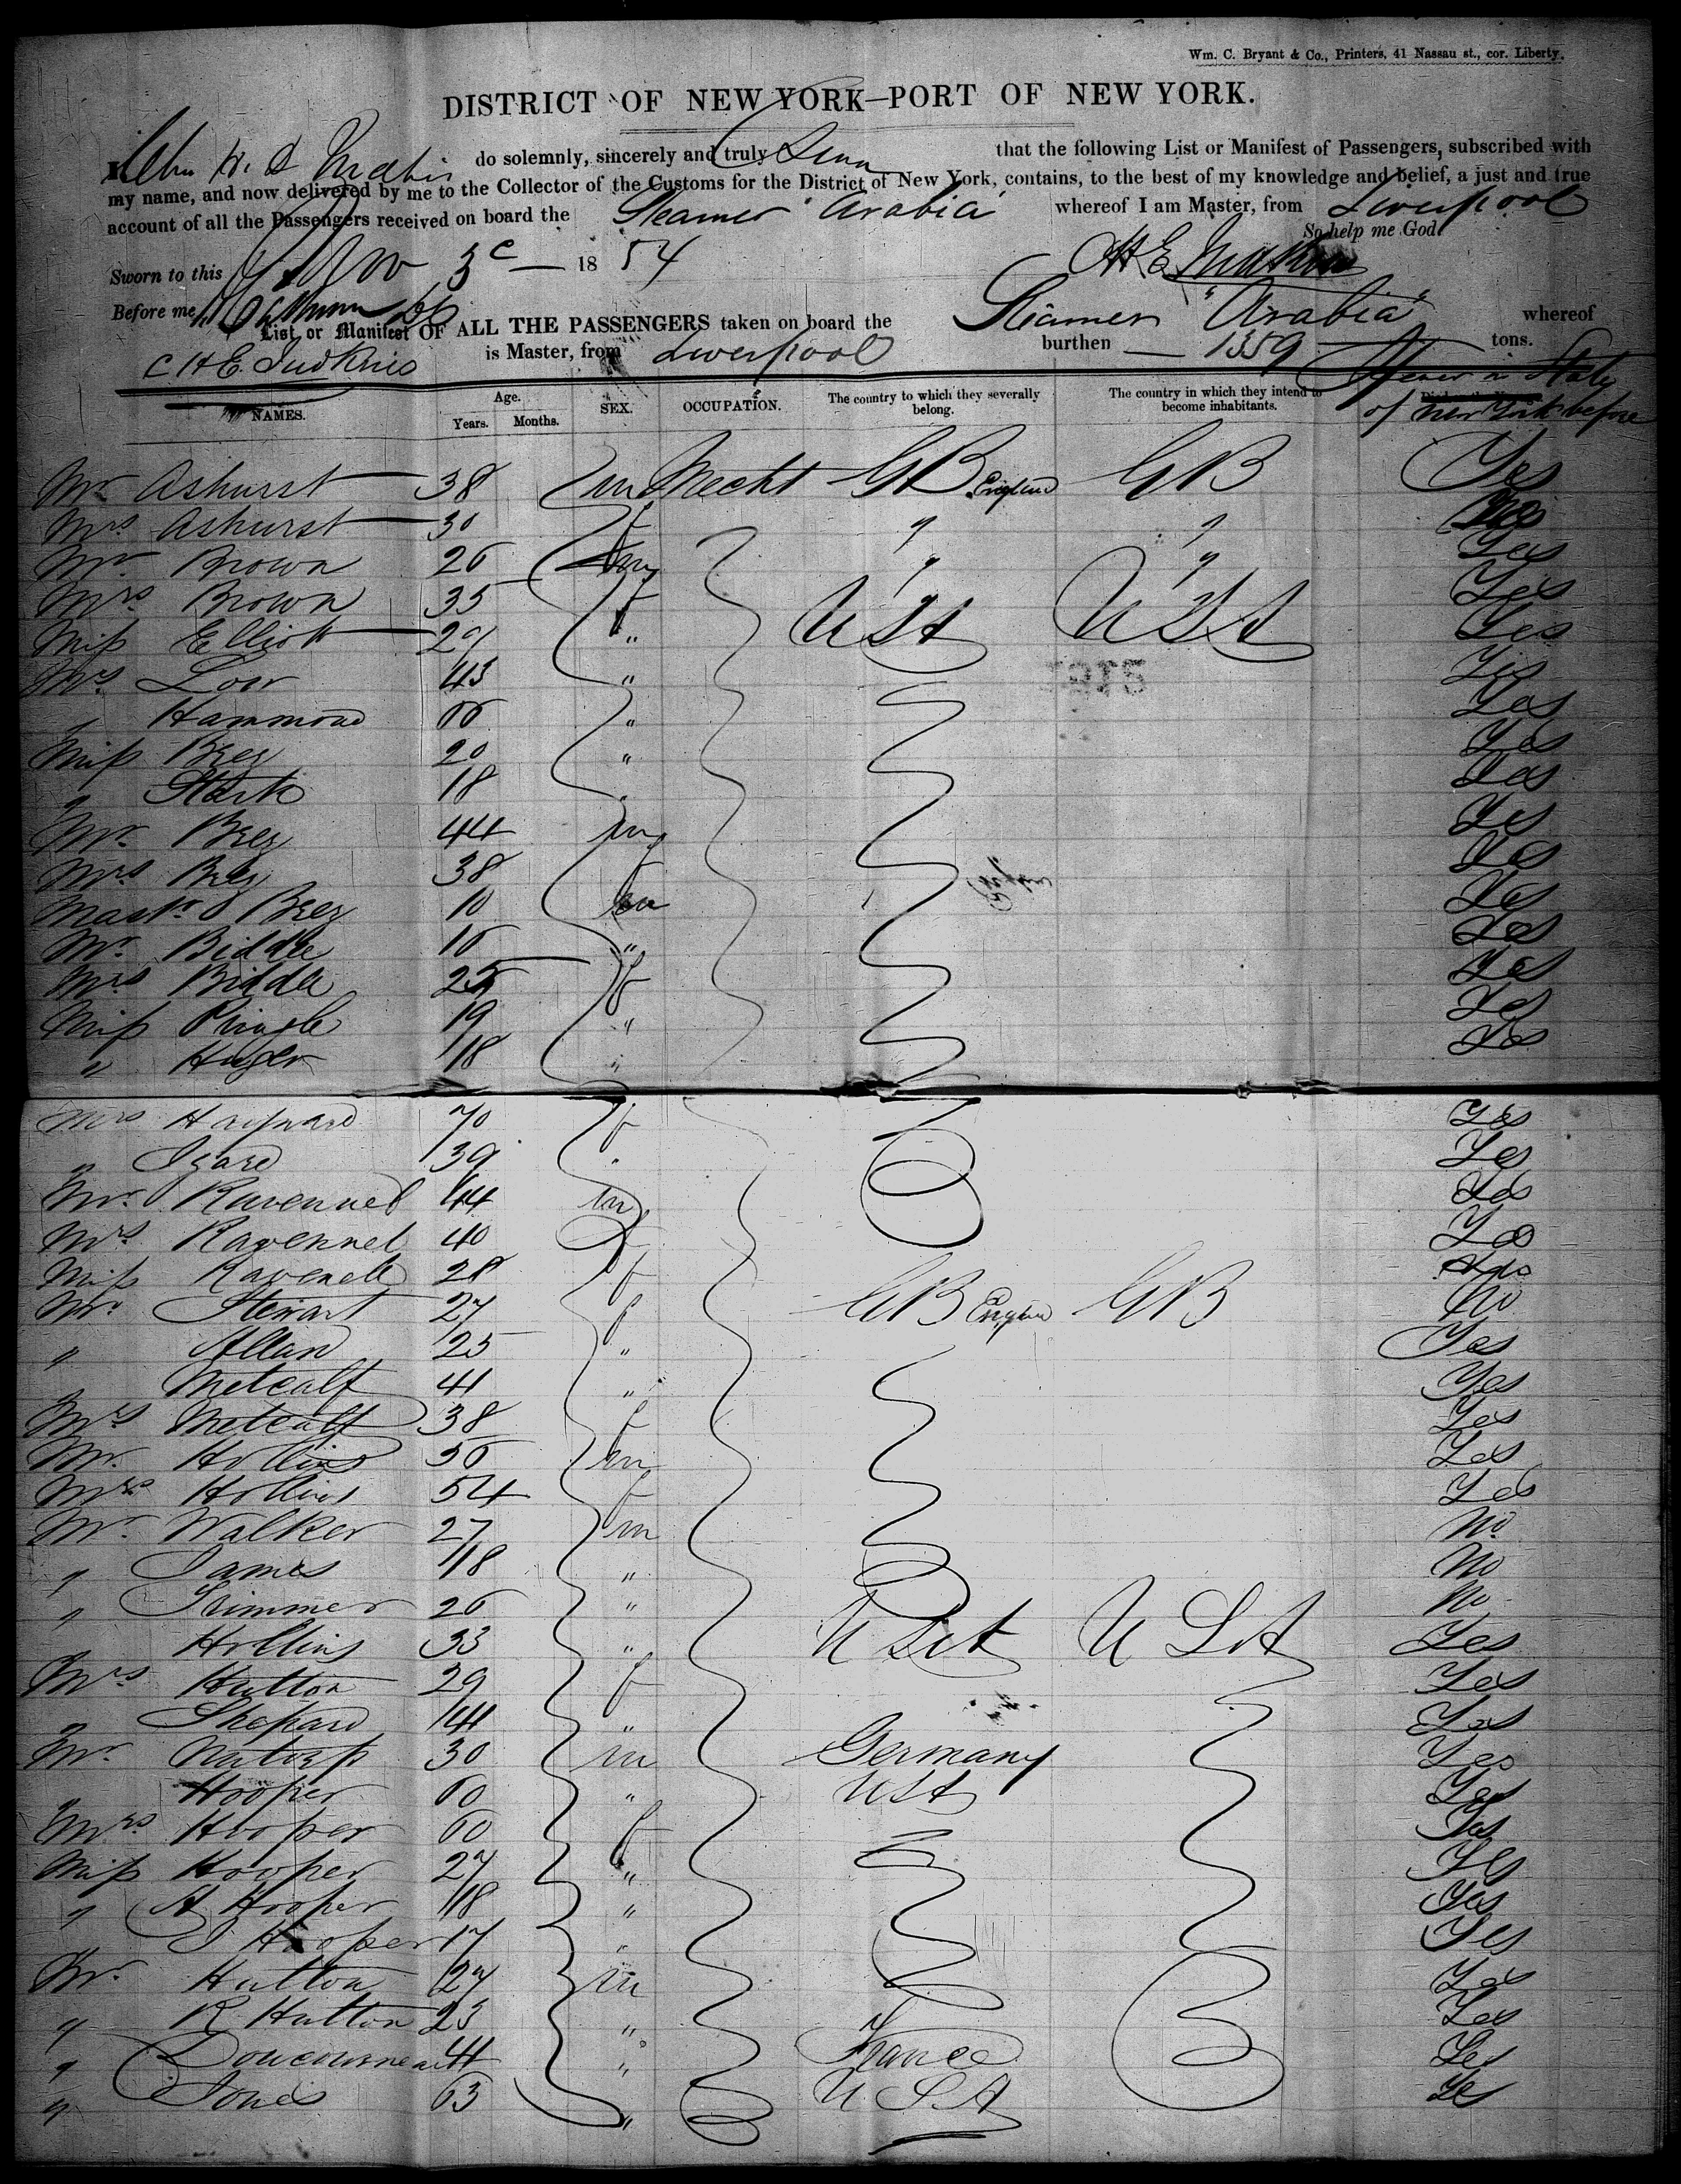 Wm. C. Bryant & Co., Printers, 41 Nassau st., cor. Liberty.
DISTRICT OF NEW YORK—PORT OF NEW YORK.
I, do solemnly, sincerely and truly that the following List or Manifest of Passengers, subscribed with
my name, and now delivered by me to the Collector of the Customs for the District of New York, contains, to the best of my knowledge and belief, a just and true
account of all the Passengers received on board the Steamer "Arabia" whereof I am Master, from Liverpool
So help me God.
Sworn to this Nov 3d — 1854
Before me
List or Manifest OF ALL THE PASSENGERS taken on board the Steamer "Arabia" whereof
C H E Judkins is Master, from Liverpool burthen — 1359 — tons.
NAMES. Age. Years. Months. SEX. OCCUPATION. The country to which they severally belong. The country in which they intend to become inhabitants. in State of New York before
Mr Ashurst 38 m Mecht GB England GB Yes
Mrs Ashurst 30 f " "
Mr Brown 26 m " " Yes
Mrs Brown 35 f " " Yes
Miss Elliott 29 " USA USA Yes
Mrs Low 43 " Yes
" Hammond 66 " Yes
Miss Brez 20 " Yes
" Stark 18 " Yes
Mr Brez 44 m Yes
Mrs Brez 38 f Yes
Mastr Brez 10 m Yes
Mr Biddle 16 " Yes
Mrs Biddle 25 f Yes
Miss Pringle 19 " Yes
" Huger 18 " Yes
Mrs Hayward 70 f Yes
" Izard 39 " Yes
Mr Ravennel 44 m Yes
Mrs Ravennel 40 f Yes
Miss Ravenele 28 f
Mr Stewart 27 GB England GB No
" Allan 25 " Yes
" Metcalf 41 " Yes
Mrs Metcalf 38 f Yes
Mr Hollins 56 m Yes
Mrs Hollins 54 f Yes
Mr Walker 27 m No
" James 18 " No
" Trimmer 26 " No
Hollins 33 " USA USA Yes
Mrs Hutton 29 f Yes
" Shepard 44 " Yes
Mr Natorp 30 m Germany Yes
" Hooper 60 " USA Yes
Mrs Hooper 60 f Yes
Miss Hooper 27 " Yes
" A Hooper 18 " Yes
Hooper 17 " Yes
Mr Hutton 27 m Yes
" R Hutton 23 " Yes
" 44 " France Yes
" Jones 63 " USA Yes